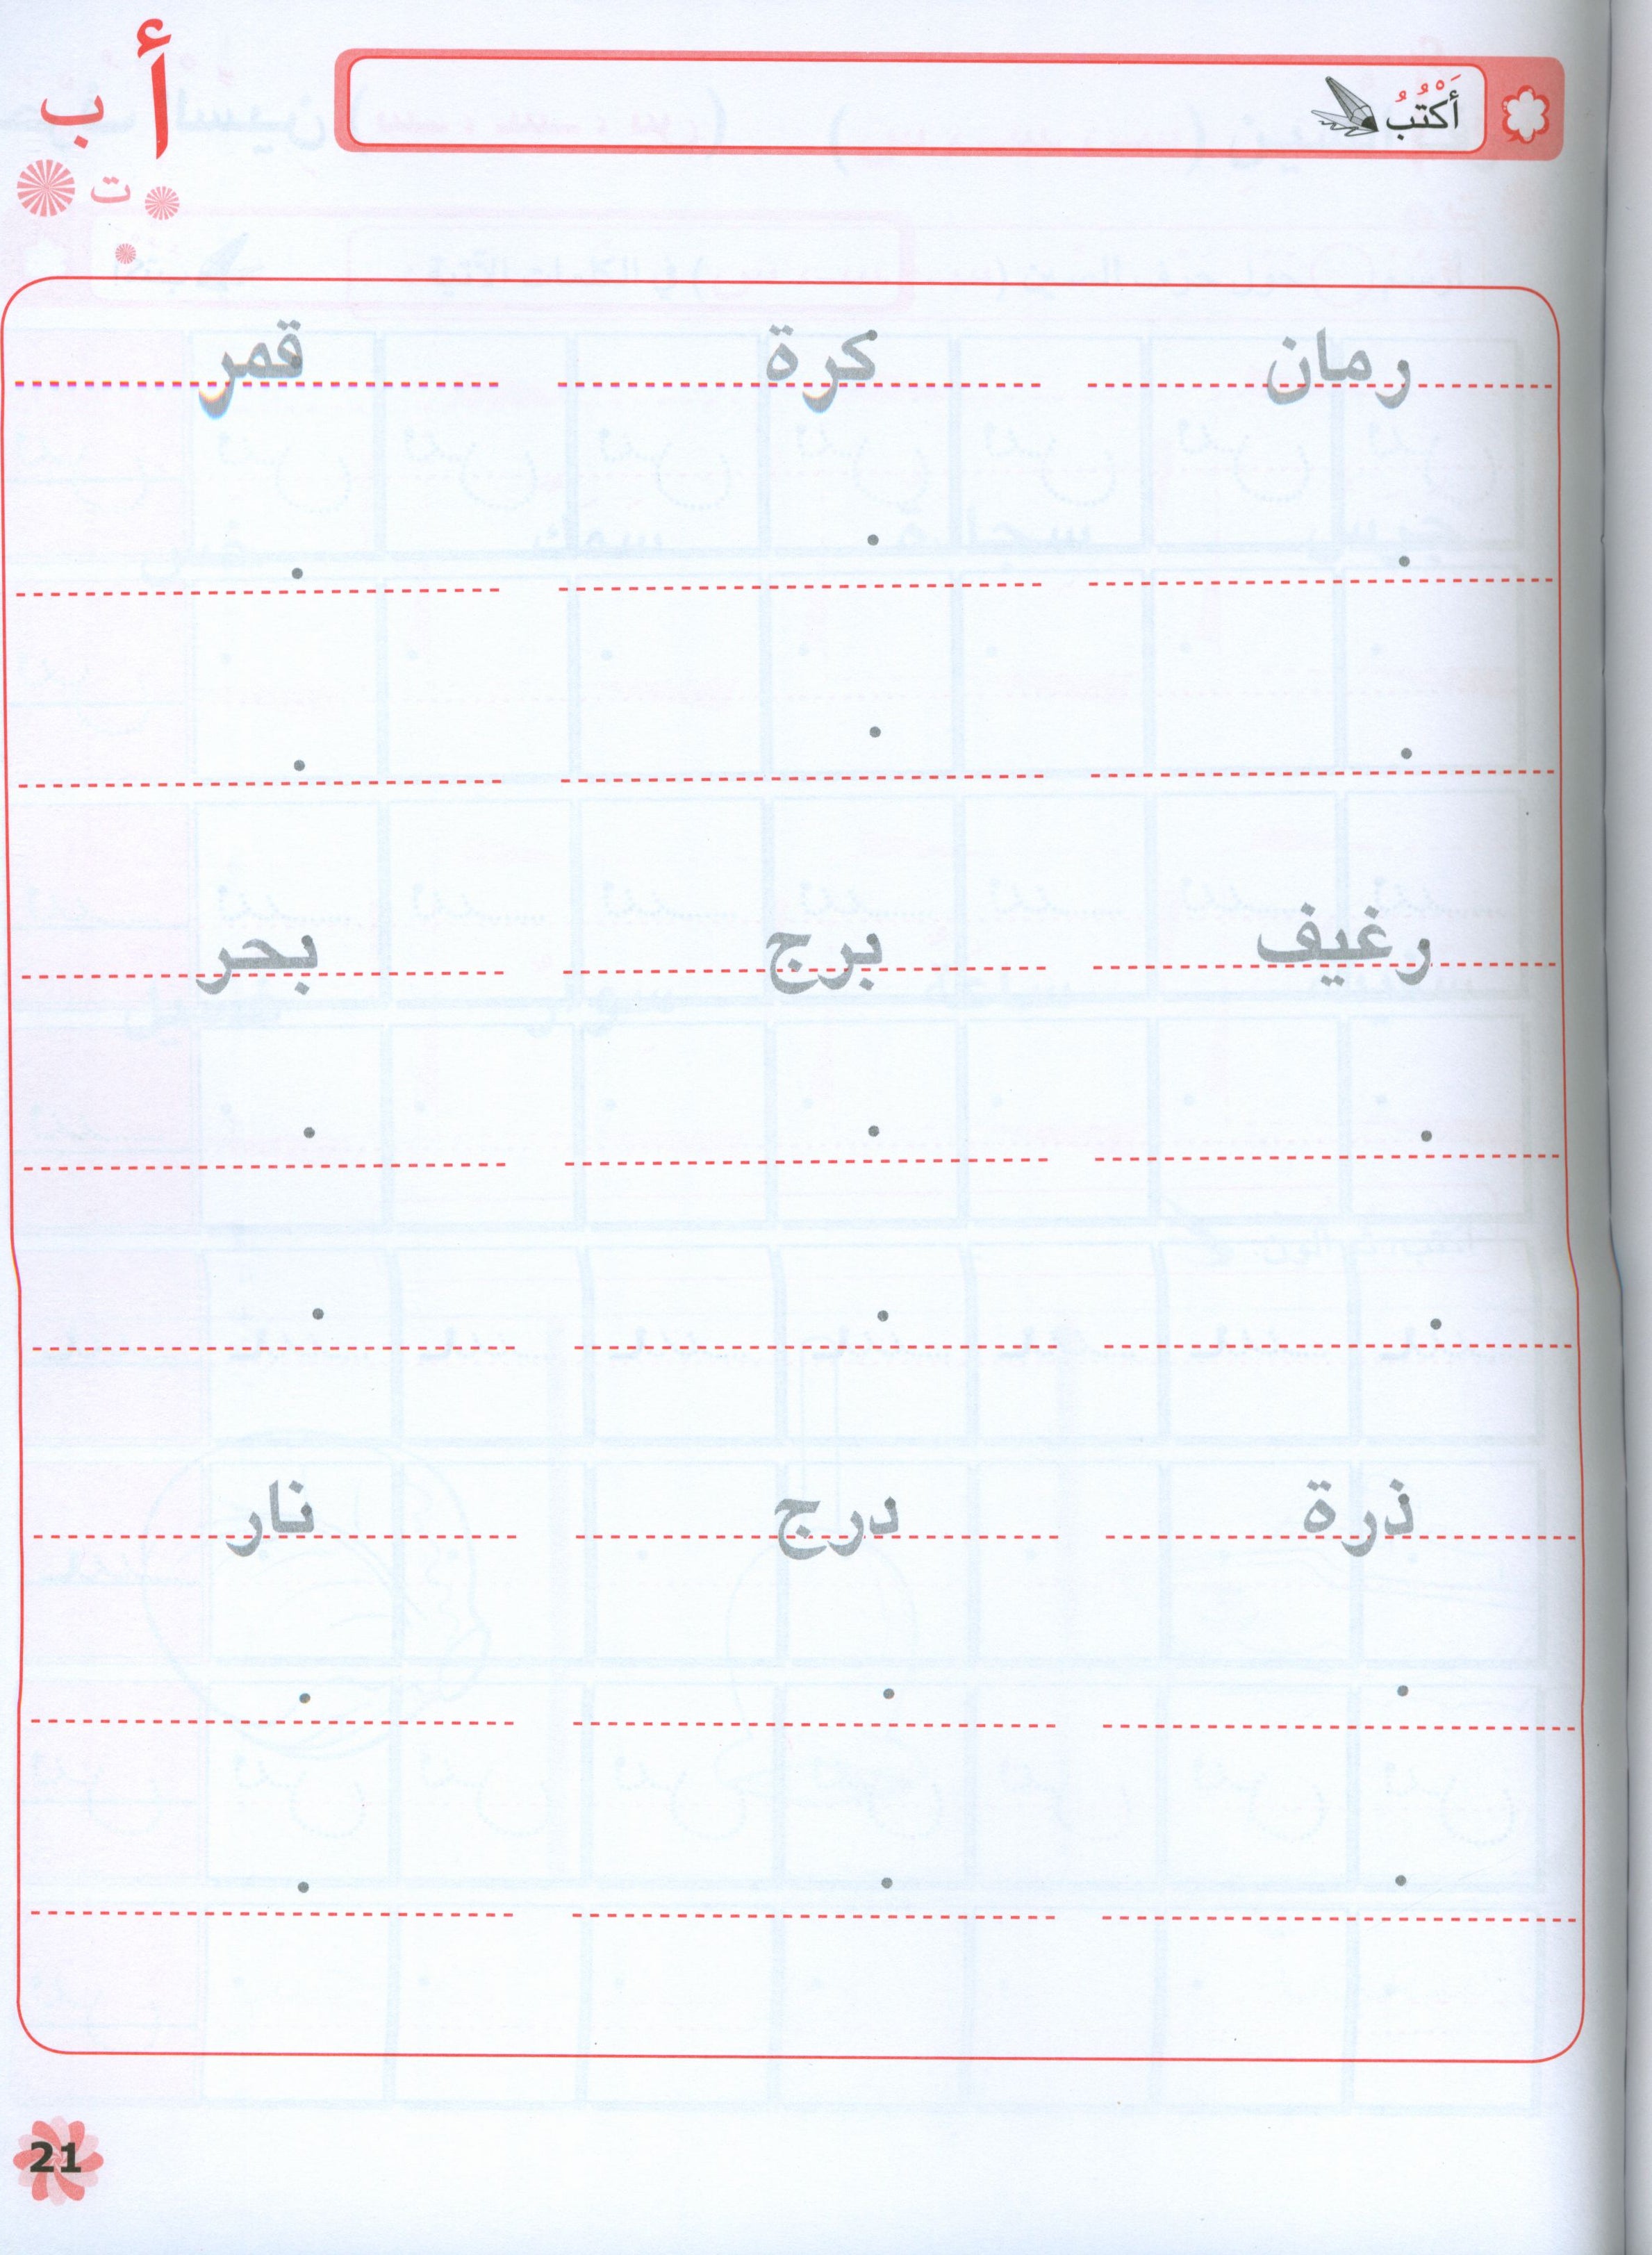 أ ب
ت
أَكْتُبُ
رمان كرة قمر
رغيف برج بحر
ذرة درج نار
21